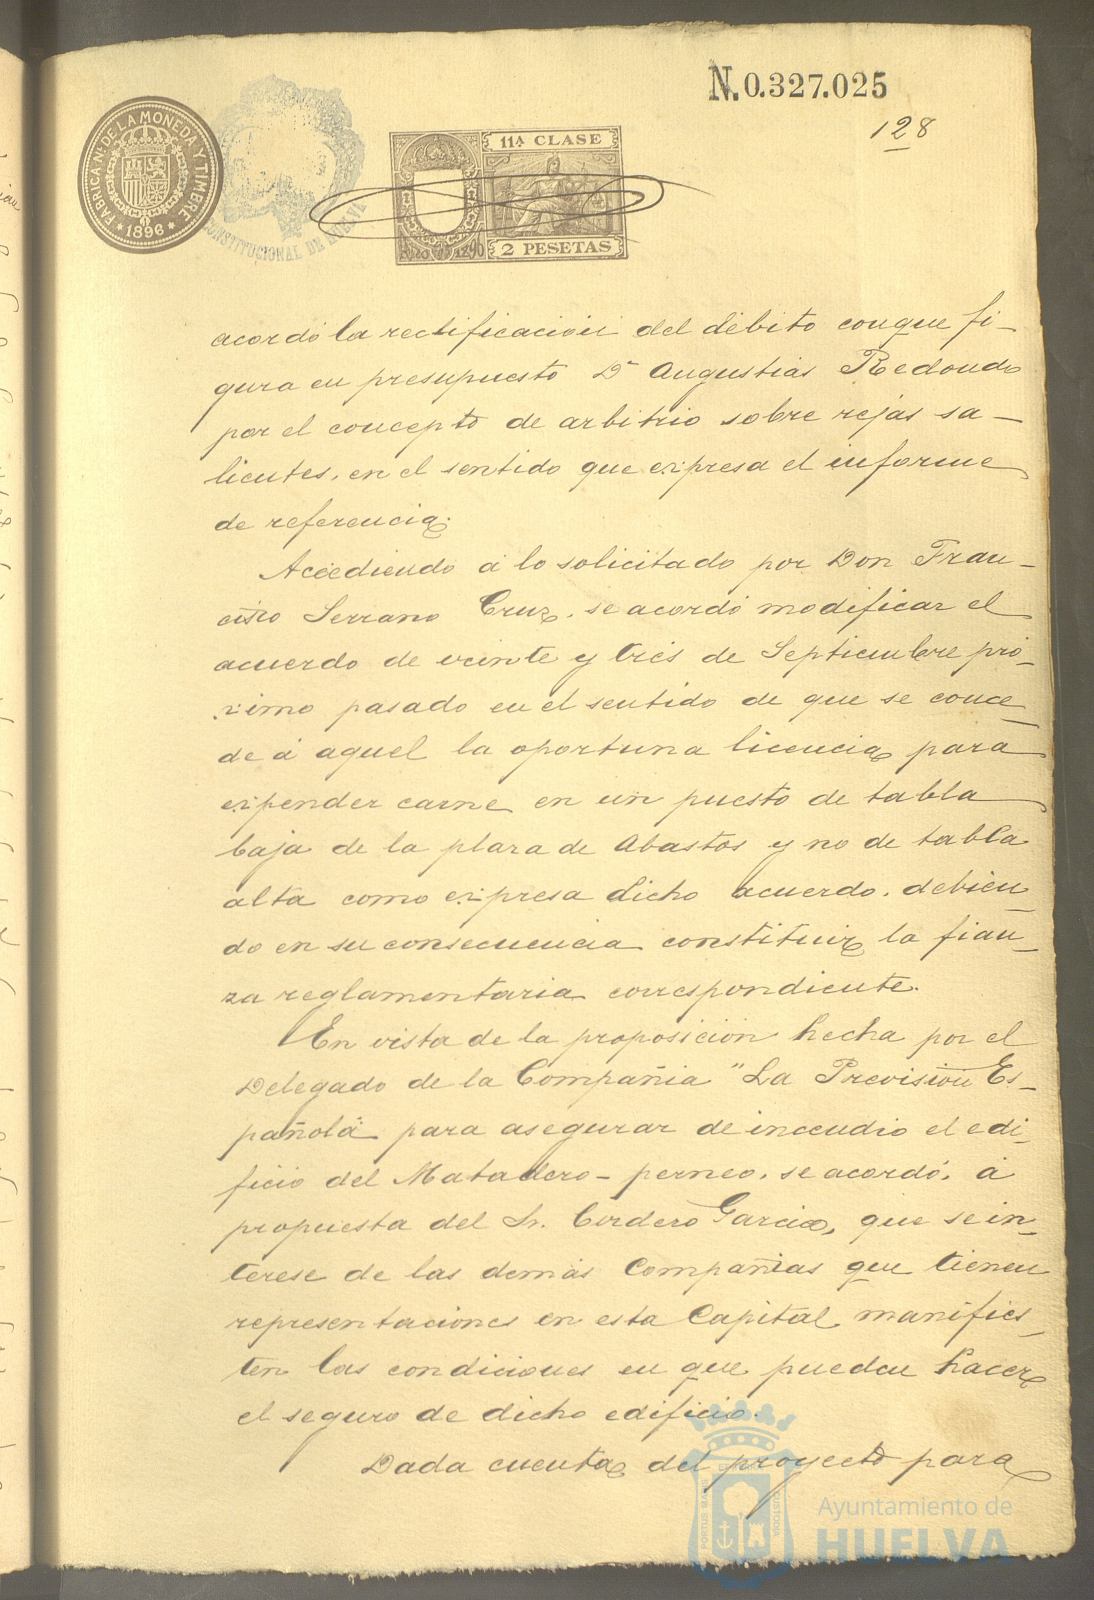 N.0.327.025
128
FABRICA NAL DE LA MONEDA Y TIMBRE
* 1896 *
CONSTITUCIONAL DE HUELVA
11ª CLASE
2 PESETAS
acordó la rectificación del débito conque fi-
gura en presupuesto Dª Augustias Redondo
por el concepto de arbitrio sobre rejas sa-
lientes, en el sentido que expresa el informe
de referencia.
Accediendo á lo solicitado por Don Fran-
cisco Serrano Cruz, se acordó modificar el
acuerdo de veinte y tres de Septiembre pró-
ximo pasado en el sentido de que se conce-
de á aquel la oportuna licencia para
expender carne en un puesto de tabla
baja de la plaza de Abastos y no de tabla
alta como expresa dicho acuerdo, debien-
do en su consecuencia constituir la fian-
za reglamentaria correspondiente.
En vista de la proposición hecha por el
Delegado de la Compañia "La Previsión Es-
pañola" para asegurar de incendio el edi-
ficio del Matadero-perneo, se acordó, á
propuesta del Sr. Cordero Garcia, que se in-
terese de las demás Compañias que tienen
representaciones en esta Capital manifies-
ten las condiciones en que pueden hacer
el seguro de dicho edificio.
Dada cuenta del proyecto para
PORTUS MARIS
CUSTODIA
Ayuntamiento de
HUELVA